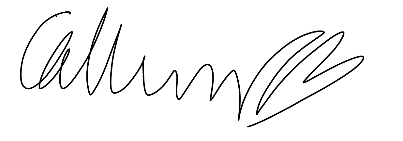 Callum B